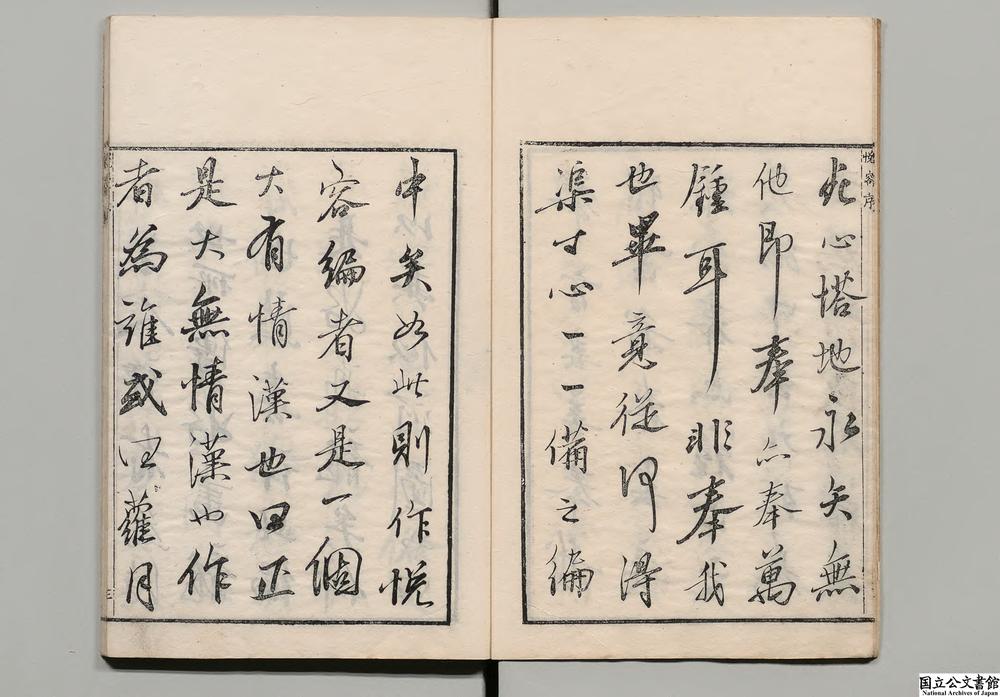 悅容序
死心塔地永矢無
他即奉亦奉萬
鍾耳非奉我
也畢竟從何得
渠寸心一一備之編
中矣如此則作悅
容編者又是一個
大有情漢也曰正
是大無情漢也作
者為誰或曰蘿月
三
国立公文書館
National Archives of Japan